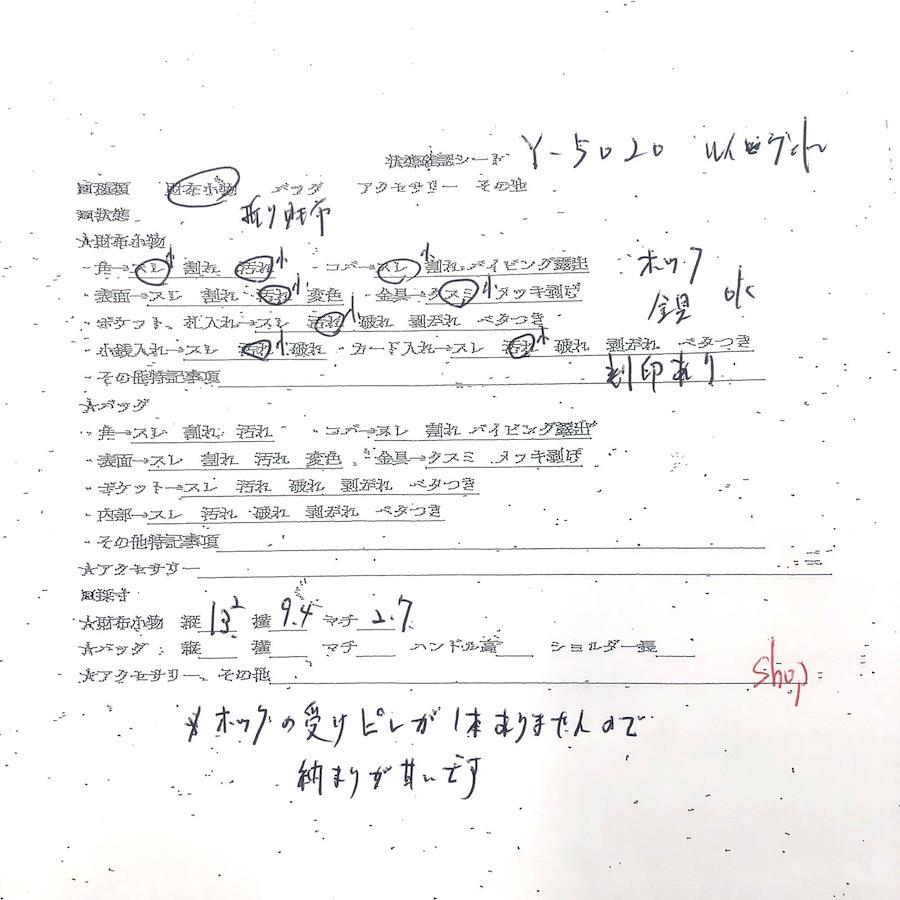 状態確認シート Y-5020 ルイヴィトン
□種類 財布小物 バッグ アクセサリー その他
□状態 折り財布
★財布小物
・角→スレ小 割れ 汚れ小 ・コバ→スレ小 割れ パイピング露出 ホック
・表面→スレ 割れ 汚れ小 変色 ・金具→クスミ小 メッキ剥げ 金具 ok
・ポケット、札入れ→スレ 汚れ小 破れ 剥がれ ベタつき
・小銭入れ→スレ 汚れ小 破れ ・カード入れ→スレ 汚れ小 破れ 剥がれ ベタつき
・その他特記事項 刻印あり
★バッグ
・角→スレ 割れ 汚れ ・コバ→スレ 割れ パイピング露出
・表面→スレ 割れ 汚れ 変色 ・金具→クスミ メッキ剥げ
・ポケット→スレ 汚れ 破れ 剥がれ ベタつき
・内部→スレ 汚れ 破れ 剥がれ ベタつき
・その他特記事項
★アクセサリー
□採寸
★財布小物 縦 13.2 横 9.4 マチ 2.7
★バッグ:縦 横 マチ ハンドル高 ショルダー長
★アクセサリー、その他
shop
※ホックの受けピンが1本ありませんので
納まりが甘いです